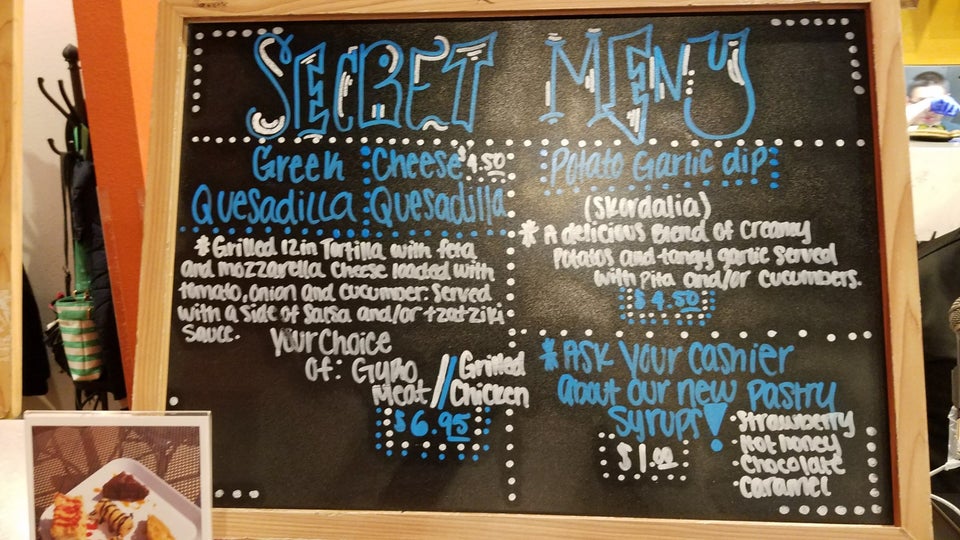 SECRET MENU
Green Cheese $4.50
Quesadilla Quesadilla
*Grilled 12in Tortilla with feta
and mozzarella cheese loaded with
tomato, onion and cucumber. Served
with a side of salsa and/or tzatziki
sauce.
Your Choice
Of: Gyro Meat // Grilled Chicken
$6.95
Potato Garlic dip
(Skordalia)
* A delicious Blend of creamy
potatoes and tangy garlic served
with pita and/or cucumbers.
$4.50
*Ask your cashier
about our new pastry
syrups!
$1.00
Strawberry
Hot honey
Chocolate
Caramel